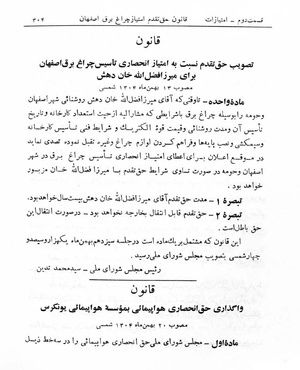 قسمت دوم - امتیازات قانون حق تقدم امتیاز چراغ برق اصفهان ۳۰۴
قانون
تصویب حق تقدم نسبت به امتیاز انحصاری تاسیس چراغ برق اصفهان
برای میرزا فضل الله خان دهش
مصوب ۱۳ بهمن ماه ۱۳۰۴ شمسی
مادهٔ واحده - تا وقتی که آقای میرزا فضل الله خان دهش روشنائی شهر اصفهان
وحومه را بوسیله چراغ برق باشرایطی که مشارالیه از حیث استعداد کارخانه و تاریخ
تأسیس آن ومدت روشنائی وقیمت قوهٔ الکتریک و شرایط فنی تأسیس کارخانه
وسیمکشی ونصب پایه‌ها وفراهم کردن لوازم چراغ وغیره تقبل نموده تصدی نماید
در موقع اعلان برای اعطای امتیاز انحصاری تأسیس چراغ برق در شهر
اصفهان وحومه در صورت تساوی شرایط حق تقدم با میرزا فضل الله خان مزبور
خواهد بود.
تبصرهٔ ۱ - مدت حق تقدم آقای میرزا فضل الله خان دهش بیست سال خواهد بود.
تبصرهٔ ۲ - حق تقدم قابل انتقال بخارجه نخواهد بود - در صورت انتقال این
حق باطل است.
این قانون که مشتمل بر یک ماده است در جلسه سیزدهم بهمن ماه یکهزار و سیصد و
چهار شمسی بتصویب مجلس شورای ملی رسید.
رئیس مجلس شورای ملی - سید محمد تدین
قانون
واگذاری حق انحصاری هواپیمائی بمؤسسهٔ هواپیمائی یونکرس
مصوب ۲۰ بهمن ماه ۱۳۰۴ شمسی
مادهٔ اول - مجلس شورای ملی حق انحصاری هواپیمائی را در سه خط ذیل